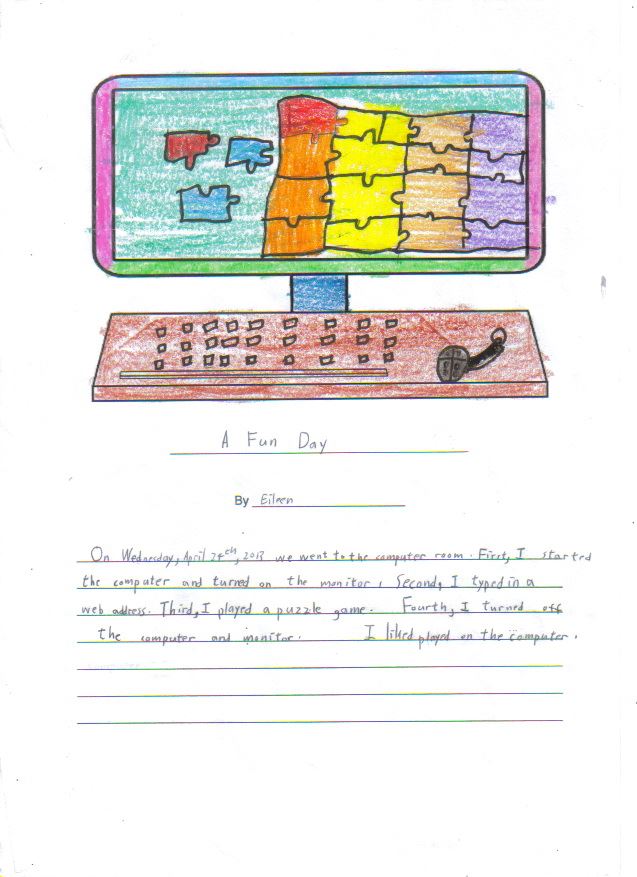 A Fun Day
By Eileen
On Wednesday, April 24th, 2013 we went to the computer room. First, I started
the computer and turned on the monitor. Second, I typed in a
web address. Third, I played a puzzle game. Fourth, I turned off
the computer and monitor. I liked played on the computer.